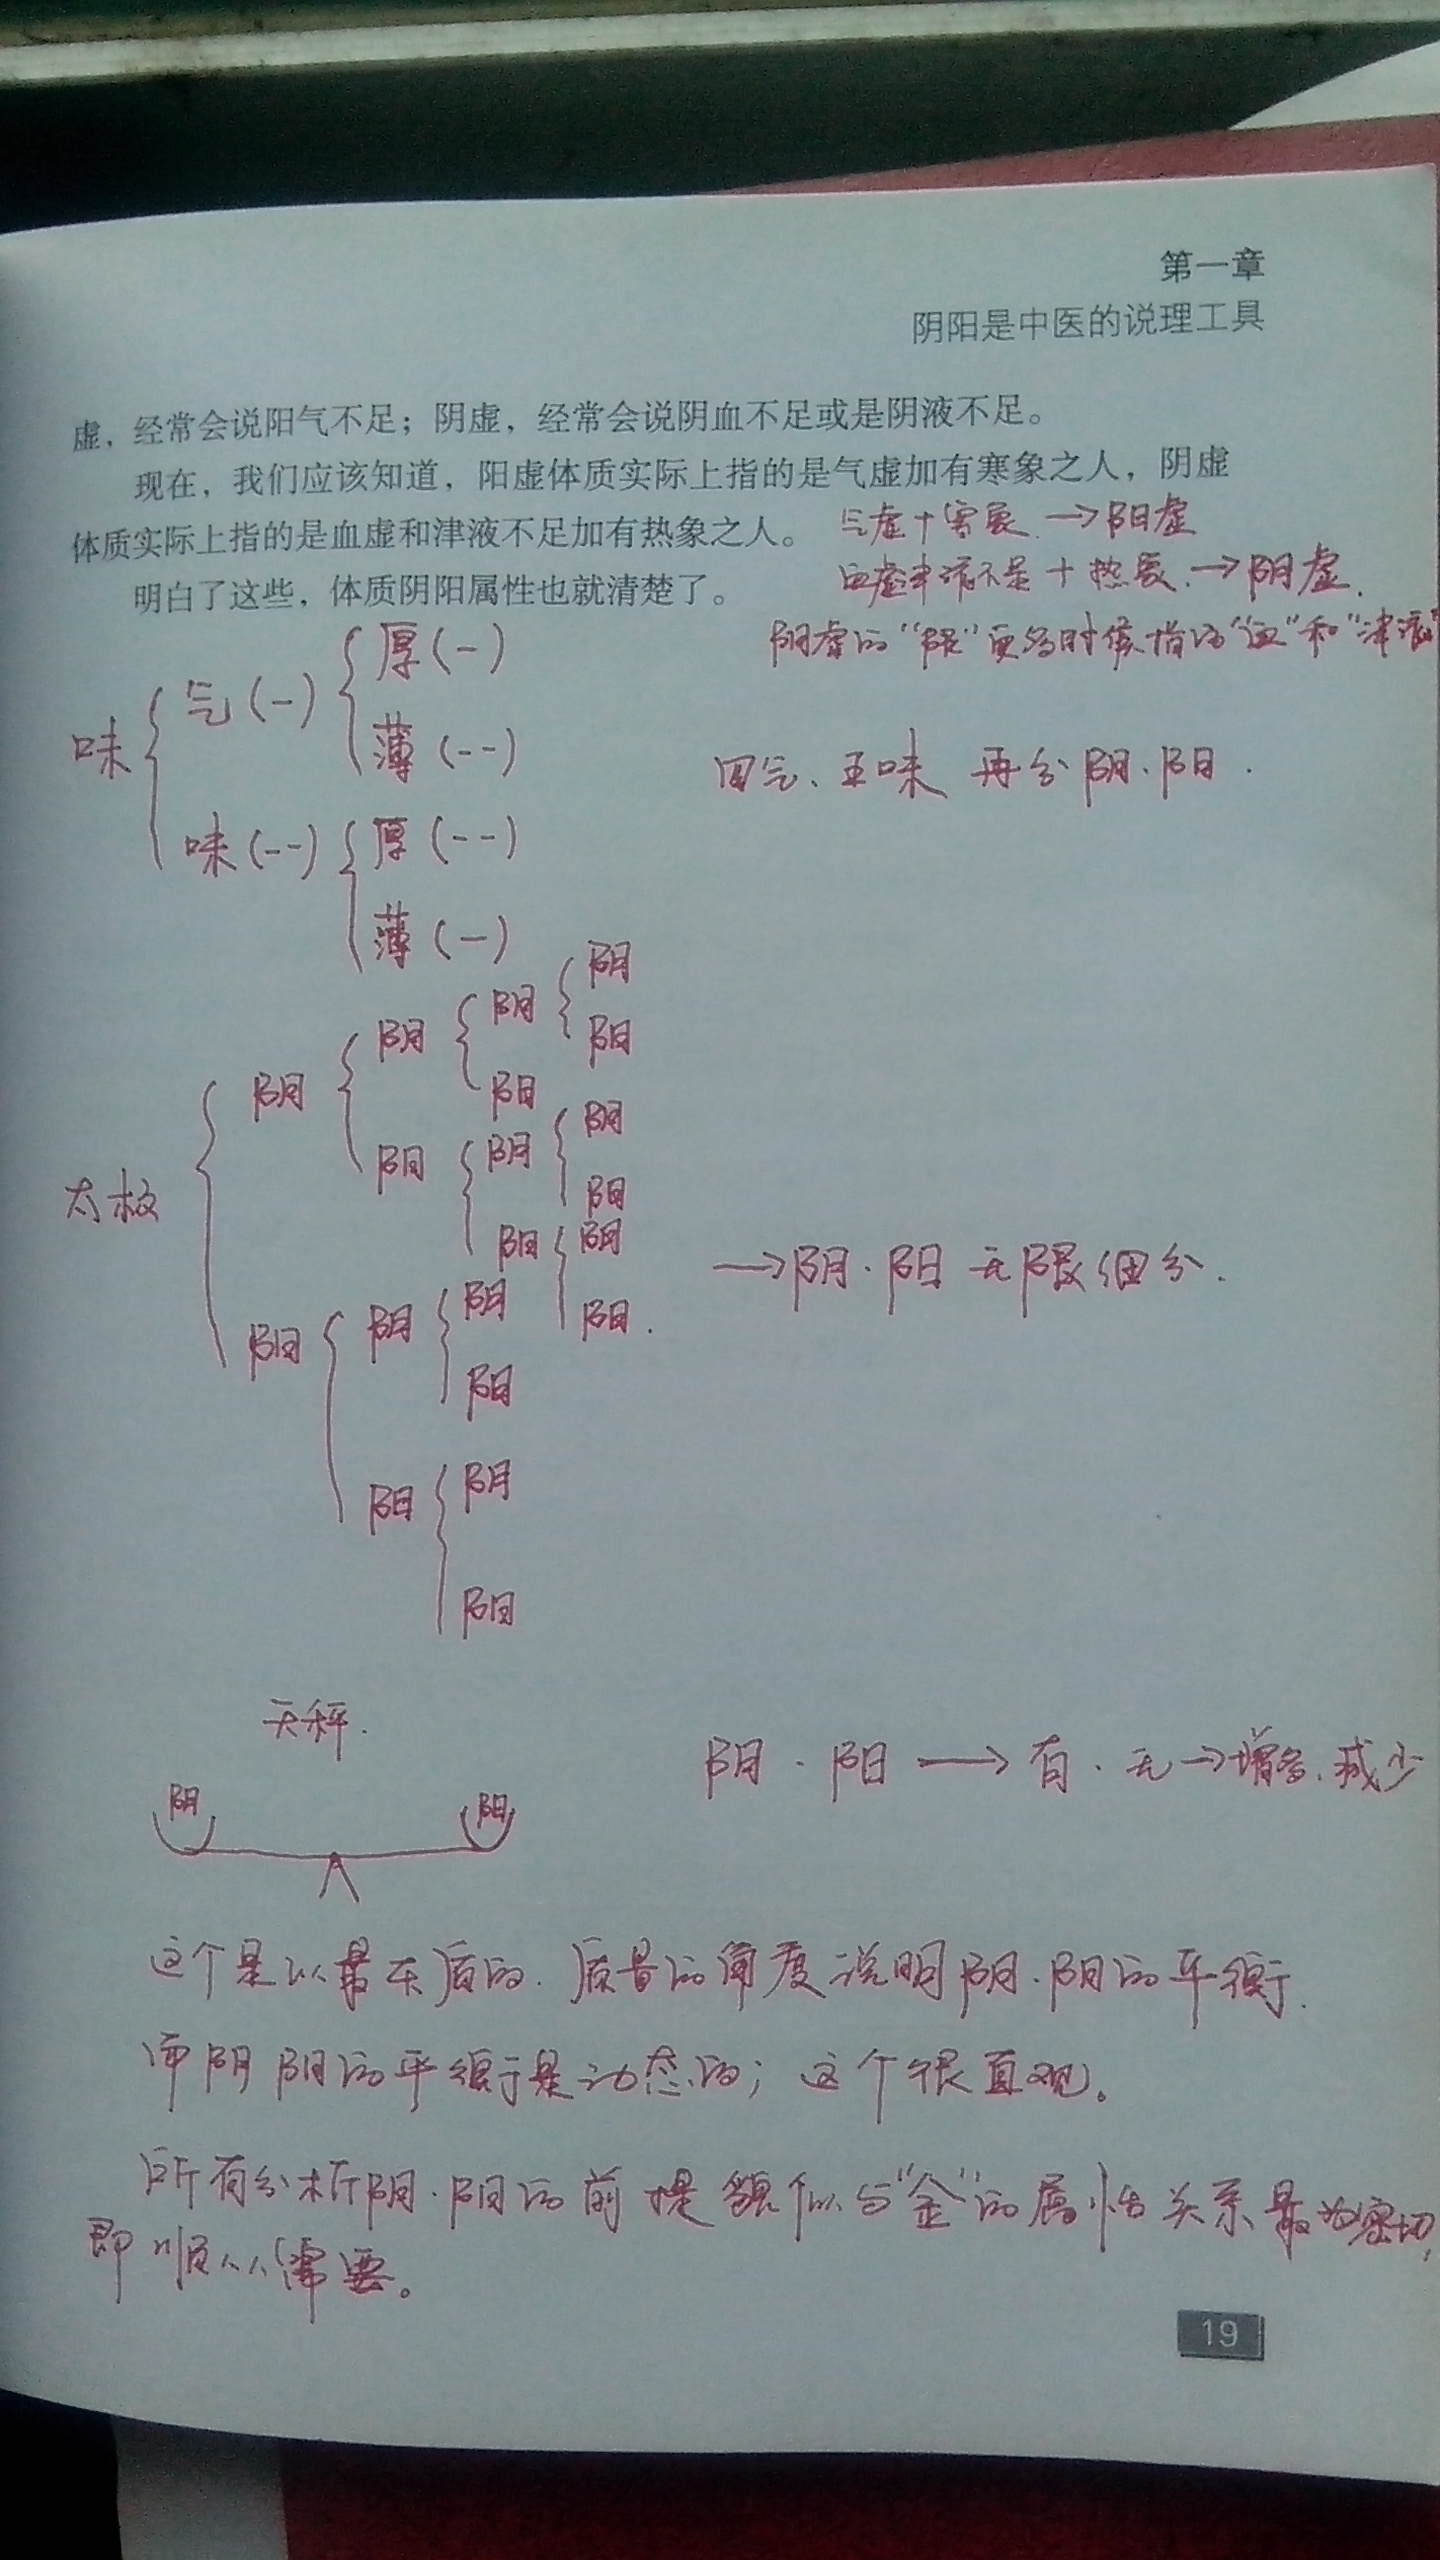 第一章
阴阳是中医的说理工具
虚，经常会说阳气不足；阴虚，经常会说阴血不足或是阴液不足。
现在，我们应该知道，阳虚体质实际上指的是气虚加有寒象之人，阴虚
体质实际上指的是血虚和津液不足加有热象之人。
气虚+寒象.→阳虚
明白了这些，体质阴阳属性也就清楚了。
血虚津液不足+热象.→阴虚.
阴虚的“阴”更多时候指的“血”和“津液”
味
气(一)
厚(一)
薄(--)
味(--)
厚(--)
薄(一)
四气、五味 再分阴.阳.
太极
阴
阴
阴
阴
阳
阳
阳
阴
阴
阳
阳
阴
阳.
阳
阴
阴
阳
阳
阴
阳
→阴.阳 无限细分.
天秤.
阴
阳
阴.阳→有.无→增多.减少
这个是以最本质的.质量的角度说明阴.阳的平衡.
而阴阳的平衡是动态的；这个很直观。
所有分析阴.阳的前提貌似与“金”的属性关系最为密切,
即顺从需要。
19